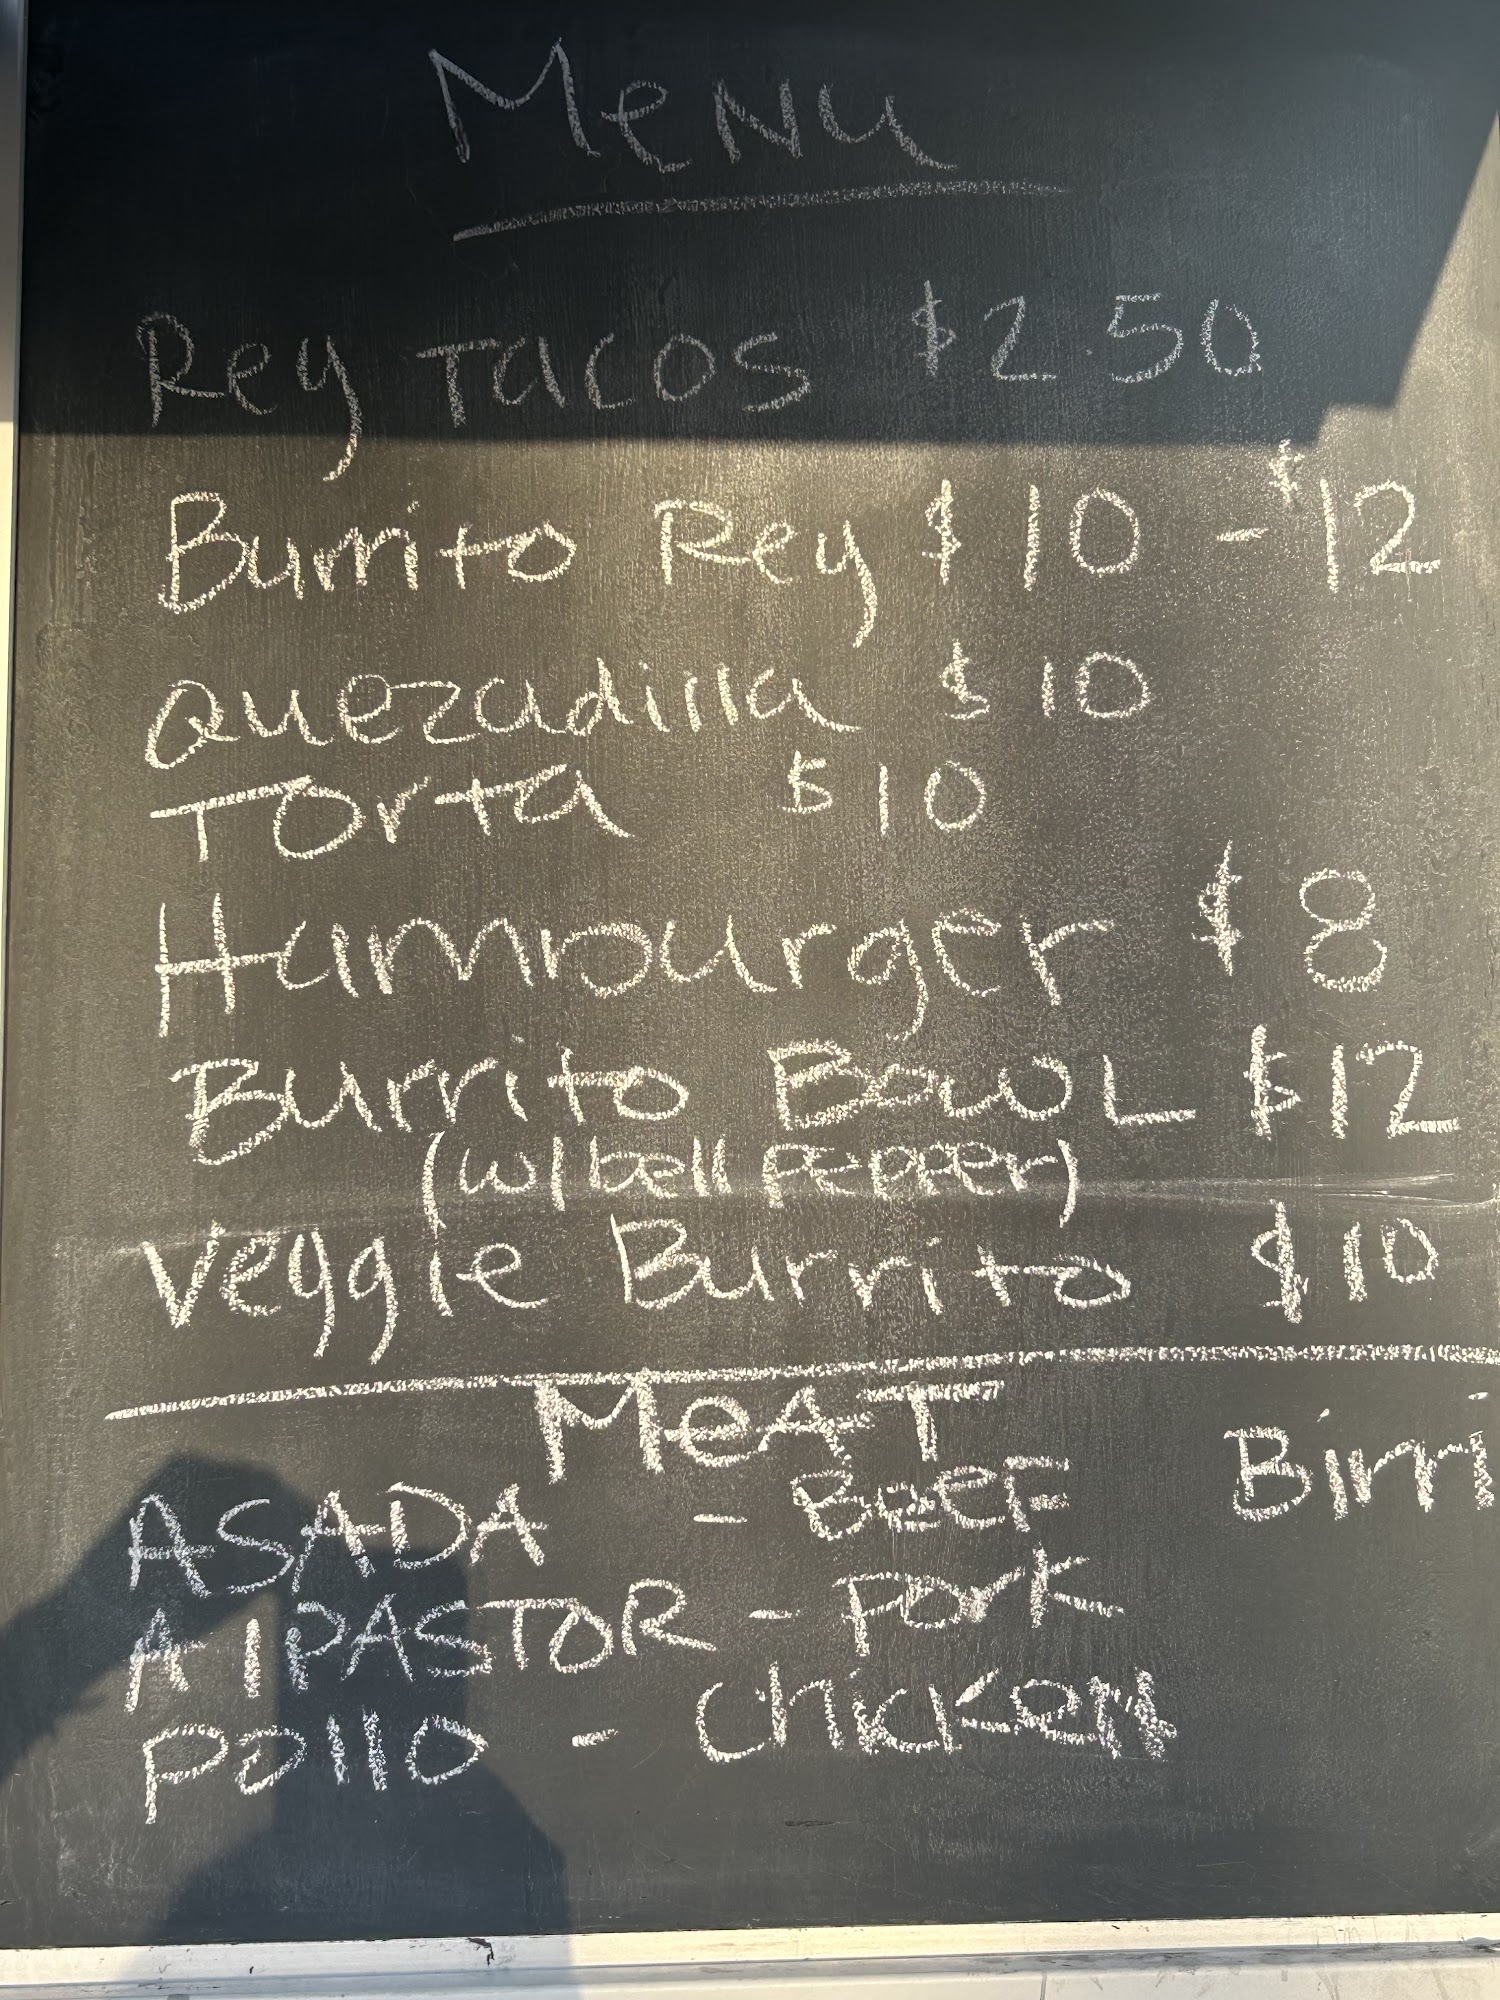 MeNu
Rey Tacos $2.50
Burrito Rey $10 - $12
Quezadilla $10
Torta $10
Hamburger $8
Burrito BowL $12
(w/bell pepper)
Veggie Burrito $10
MeAT
ASADA - BeeF Birri
Al PASTOR - Pork
Pollo - Chicken